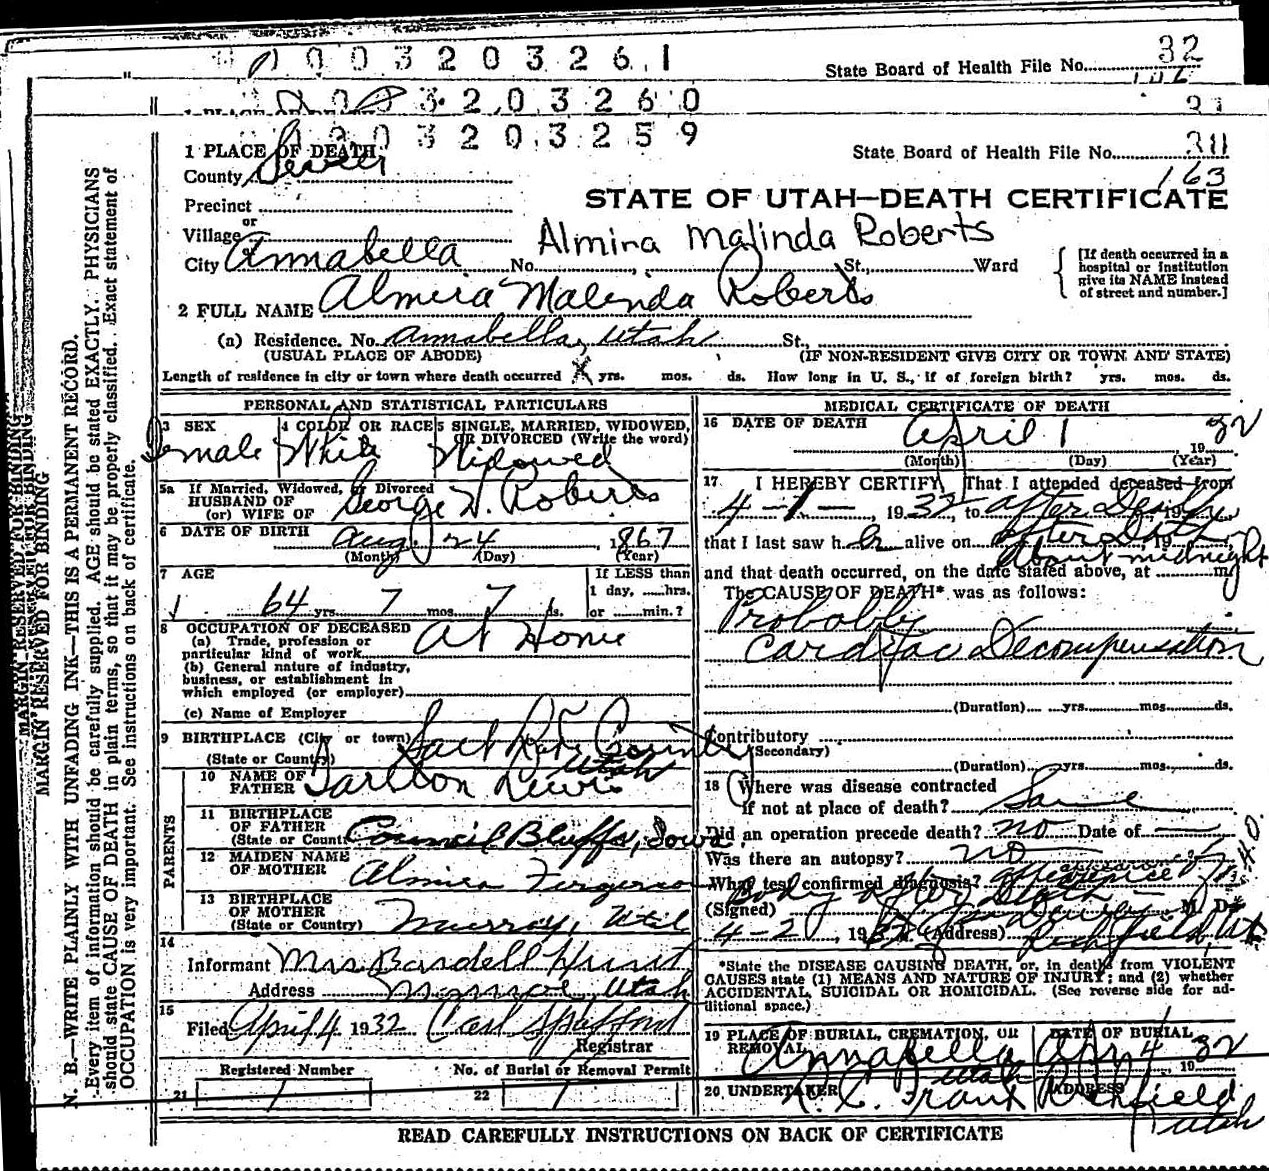 0 0 3 2 0 3 2 6 1
State Board of Health File No. 32
0 0 3 2 0 3 2 6 0
0 0 3 2 0 3 2 5 9
1 PLACE OF DEATH
State Board of Health File No. 30
163
County Sevier
STATE OF UTAH—DEATH CERTIFICATE
Precinct
or
Village
Almira Malinda Roberts
City Annabella No. St., Ward
[If death occurred in a
hospital or institution
give its NAME instead
of street and number.]
2 FULL NAME Almira Malinda Roberts
(a) Residence. No. Annabella, Utah St.,
(USUAL PLACE OF ABODE) (IF NON-RESIDENT GIVE CITY OR TOWN AND STATE)
Length of residence in city or town where death occurred X yrs. mos. ds. How long in U. S., if of foreign birth? yrs. mos. ds.
PERSONAL AND STATISTICAL PARTICULARS
3 SEX 4 COLOR OR RACE 5 SINGLE, MARRIED, WIDOWED,
OR DIVORCED (Write the word)
Female White Widowed
5a If Married, Widowed, or Divorced
HUSBAND OF
(or) WIFE OF George W. Roberts
6 DATE OF BIRTH Aug 24 1867
(Month) (Day) (Year)
7 AGE If LESS than
1 day, ......hrs.
64 yrs. 7 mos. 7 ds. or ......min.?
8 OCCUPATION OF DECEASED At Home
(a) Trade, profession or
particular kind of work
(b) General nature of industry,
business, or establishment in
which employed (or employer)
(c) Name of Employer
9 BIRTHPLACE (City or town) Salt Lake County
(State or Country) Utah
PARENTS
10 NAME OF
FATHER Tarlton Lewis
11 BIRTHPLACE
OF FATHER
(State or Country) Council Bluffs, Iowa
12 MAIDEN NAME
OF MOTHER Almira Fergerson
13 BIRTHPLACE
OF MOTHER
(State or Country) Murray, Utah
14
Informant Mrs. Bardell Hunt
Address Monroe, Utah
15
Filed April 4 1932 Carl Spafford
Registrar
Registered Number No. of Burial or Removal Permit
21 1 22 1
MEDICAL CERTIFICATE OF DEATH
16 DATE OF DEATH April 1 1932
(Month) (Day) (Year)
17 I HEREBY CERTIFY, That I attended deceased from
4-1-, 1932, to after Death, 19
that I last saw her alive on after Death, 19
About midnight
and that death occurred, on the date stated above, at m.
The CAUSE OF DEATH* was as follows:
Probably
Cardiac Decompensation
(Duration) yrs. mos. ds.
Contributory
(Secondary)
(Duration) yrs. mos. ds.
18 Where was disease contracted
if not at place of death? Same
Did an operation precede death? no Date of —
Was there an autopsy? no
What test confirmed diagnosis? appearance of
Body after Death
(Signed) M. D.
4-2, 1932 (Address) Richfield, Ut
*State the DISEASE CAUSING DEATH, or, in deaths from VIOLENT
CAUSES state (1) MEANS AND NATURE OF INJURY; and (2) whether
ACCIDENTAL, SUICIDAL OR HOMICIDAL. (See reverse side for ad-
ditional space.)
19 PLACE OF BURIAL, CREMATION, OR
REMOVAL Annabella Utah
DATE OF BURIAL
Apr 4 1932
20 UNDERTAKER ADDRESS
N. C. Frank Richfield
Utah
READ CAREFULLY INSTRUCTIONS ON BACK OF CERTIFICATE
MARGIN RESERVED FOR BINDING
N. B.—WRITE PLAINLY WITH UNFADING INK—THIS IS A PERMANENT RECORD.
Every item of information should be carefully supplied. AGE should be stated EXACTLY. PHYSICIANS
should state CAUSE OF DEATH in plain terms, so that it may be properly classified. Exact statement of
OCCUPATION is very important. See instructions on back of certificate.